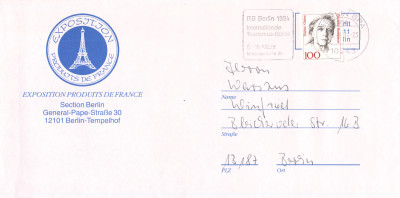 EXPOSITION
PRODUITS DE FRANCE
EXPOSITION PRODUITS DE FRANCE
Section Berlin
General-Pape-Straße 30
12101 Berlin-Tempelhof
ITB Berlin 1994
Internationale
Tourismus-Börse
100
Herrn
Name
Winfried
Str. 16B
Straße
13187 Berlin
PLZ Ort